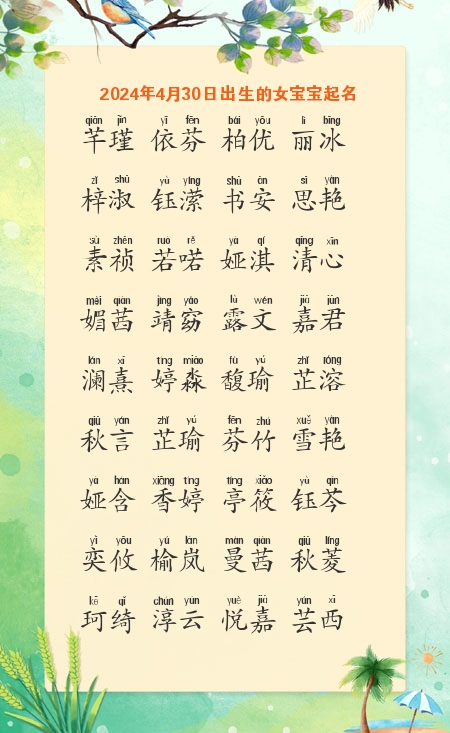 2024年4月30日出生的女宝宝起名
qiān jǐn yī fēn bǎi yōu lì bīng
芊瑾 依芬 柏优 丽冰
zǐ shū yù yíng shū ān sī yàn
梓淑 钰潆 书安 思艳
sù zhēn ruò rě yà qí qīng xīn
素祯 若喏 娅淇 清心
mèi qiàn jìng yǎo lù wén jiā jūn
媚茜 靖窈 露文 嘉君
lán xī tíng miǎo fù yú zhǐ róng
澜熹 婷淼 馥瑜 芷溶
qiū yán zhǐ yú fēn zhú xuě yàn
秋言 芷瑜 芬竹 雪艳
yà hán xiāng tíng tíng xiǎo yù qín
娅含 香婷 亭筱 钰芩
yì yōu yú lán màn qiàn qiū líng
奕攸 榆岚 曼茜 秋菱
kē qǐ chún yún yuè jiā yún xī
珂绮 淳云 悦嘉 芸西